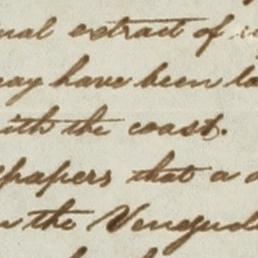 nal extract of
may have been la
ith the coast.
papers that a
the Venezuel